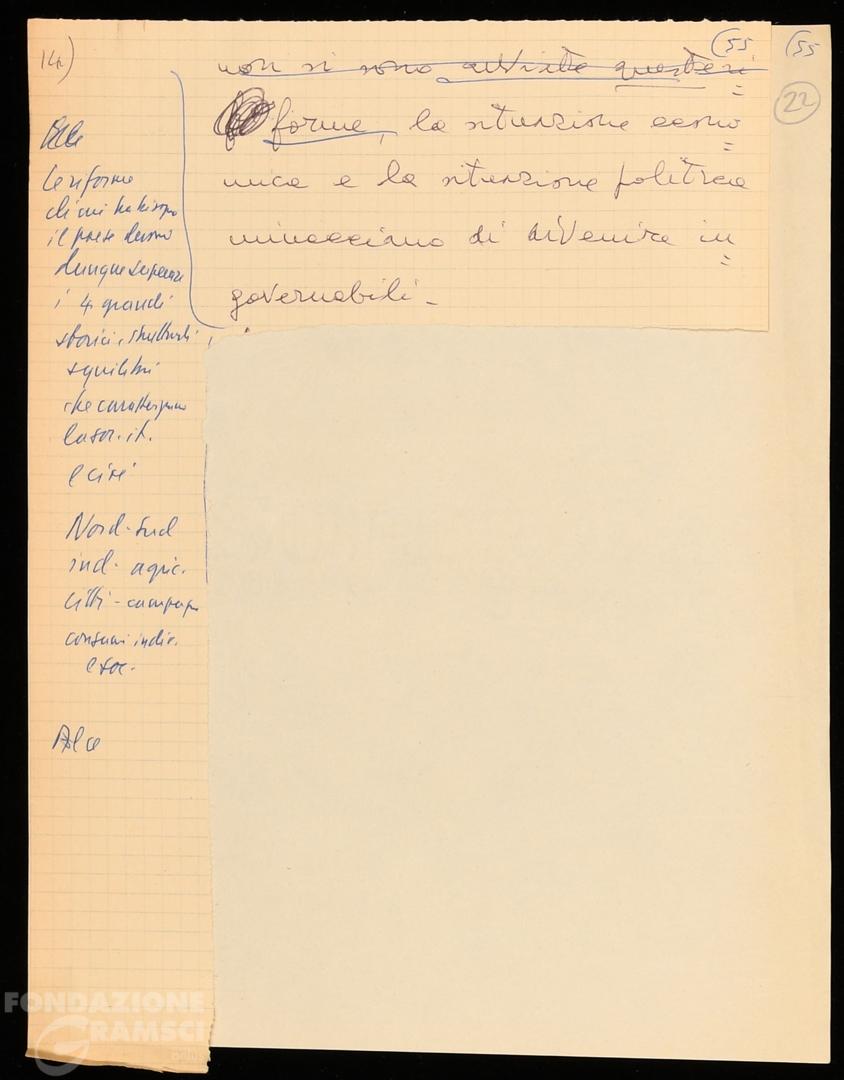 14)
(55
(55
22
non si sono avviate queste ri
forme, la situazione econo
mica e la situazione politica
minacciano di divenire in
governabili -
Le riforme
di cui ha bisogno
il paese devono
dunque superare
i 4 grandi
storici, strutturali
squilibri
che caratterizzano
la soc. it.
e cioè
Nord-Sud
ind- agric.
città - campagna
consumi indiv.
e soc.
FONDAZIONE
GRAMSCI